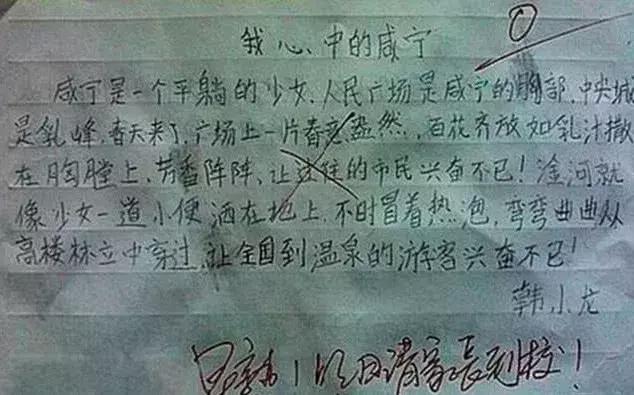 0
我心中的咸宁
咸宁是一个平躺的少女、人民广场是咸宁的胸部、中央城
是乳峰、春天来了、广场上一片春意盎然、百花齐放如乳汁撒
在胸膛上、芳香阵阵、让过往的市民兴奋不已！淦河就
像少女一道小便洒在地上、不时冒着热泡、弯弯曲曲从
高楼林立中穿过、让全国到温泉的游客兴奋不已！
韩小龙
明日请家長到校！